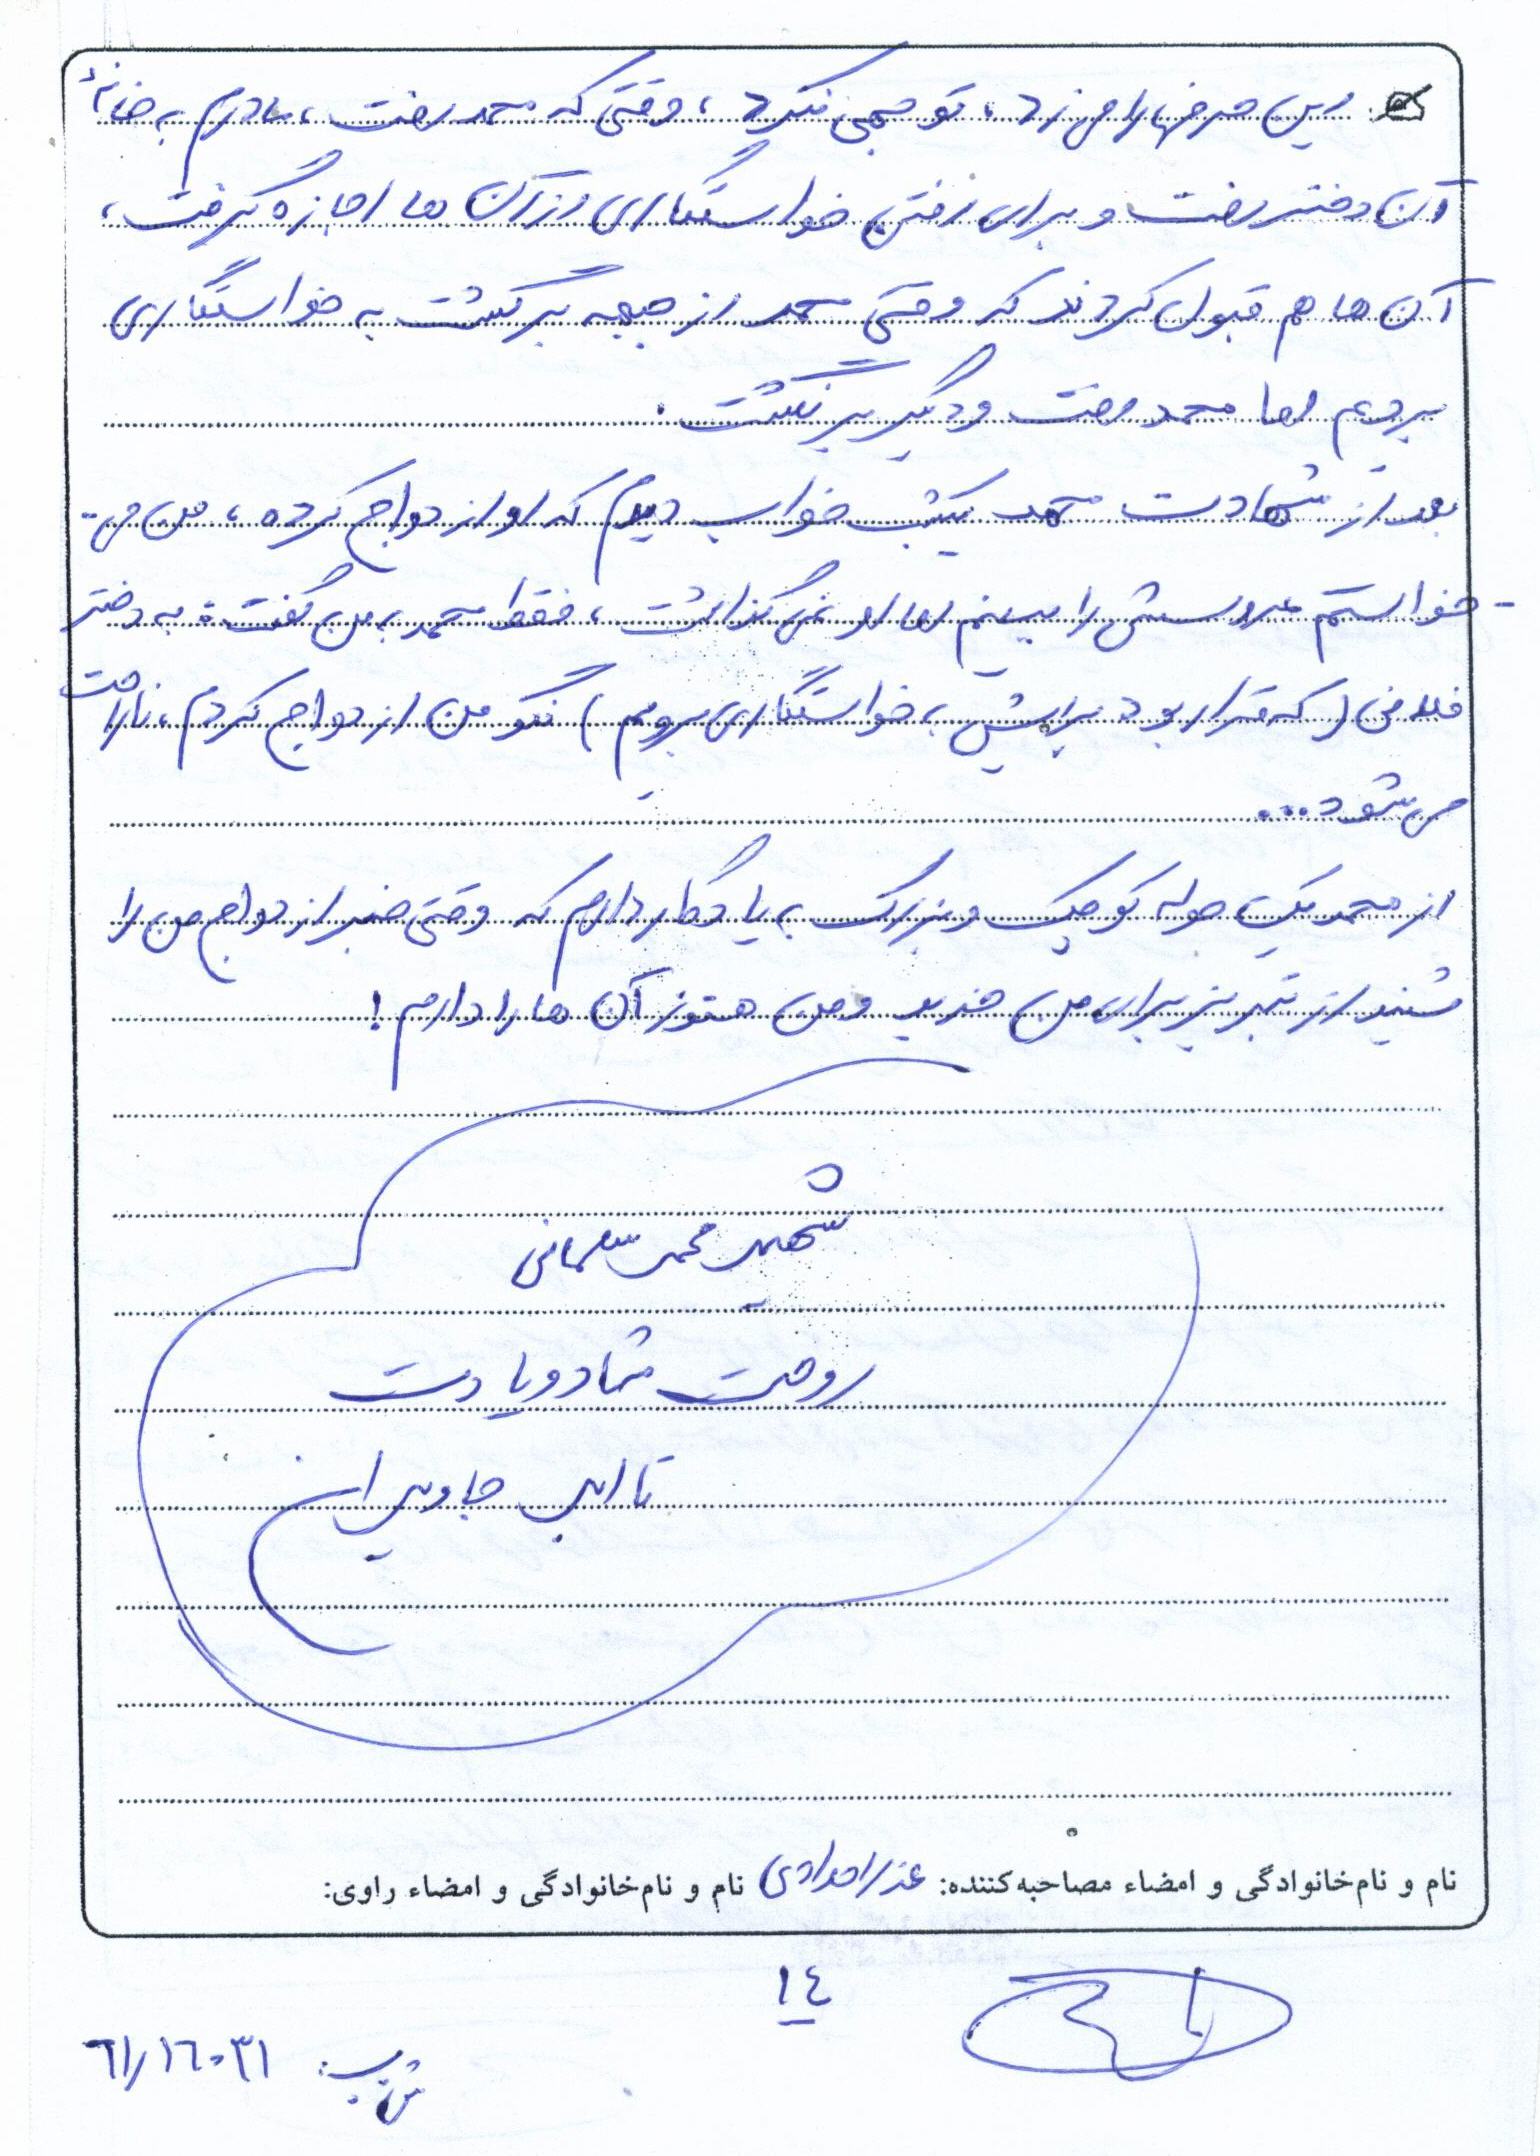 این حرفها را می زد، توجهی نکرد، وقتی که محمد رفت، مادرم به خانهٔ
آن دختر رفت و برای رفتن خواستگاری از آن ها اجازه گرفت،
آن ها هم قبول کردند که وقتی محمد از جبهه برگشت به خواستگاری
برویم اما محمد رفت و دیگر برنگشت.
بعد از شهادت محمد یکشب خواب دیدم که او ازدواج کرده، من می-
-خواستم عروسش را ببینم اما او نمی گذاشت، فقط محمد به من گفت: به دختر
فلانی (که قرار بود برایش به خواستگاری برویم) نگو من ازدواج کردم، ناراحت
می شود...
از محمد یک حوله کوچک و بزرگ به یادگار دارم که وقتی خبر ازدواج من را
شنید از تبریز برای من خرید و من هنوز آن ها را دارم!
شهید محمد سلمانی
روحت شاد و یادت
تا ابد جاویدان
نام و نام‌خانوادگی و امضاء مصاحبه‌کننده: عذرا مرادی نام و نام‌خانوادگی و امضاء راوی:
١٤
ش پ: ٦١/١٦٠٣١